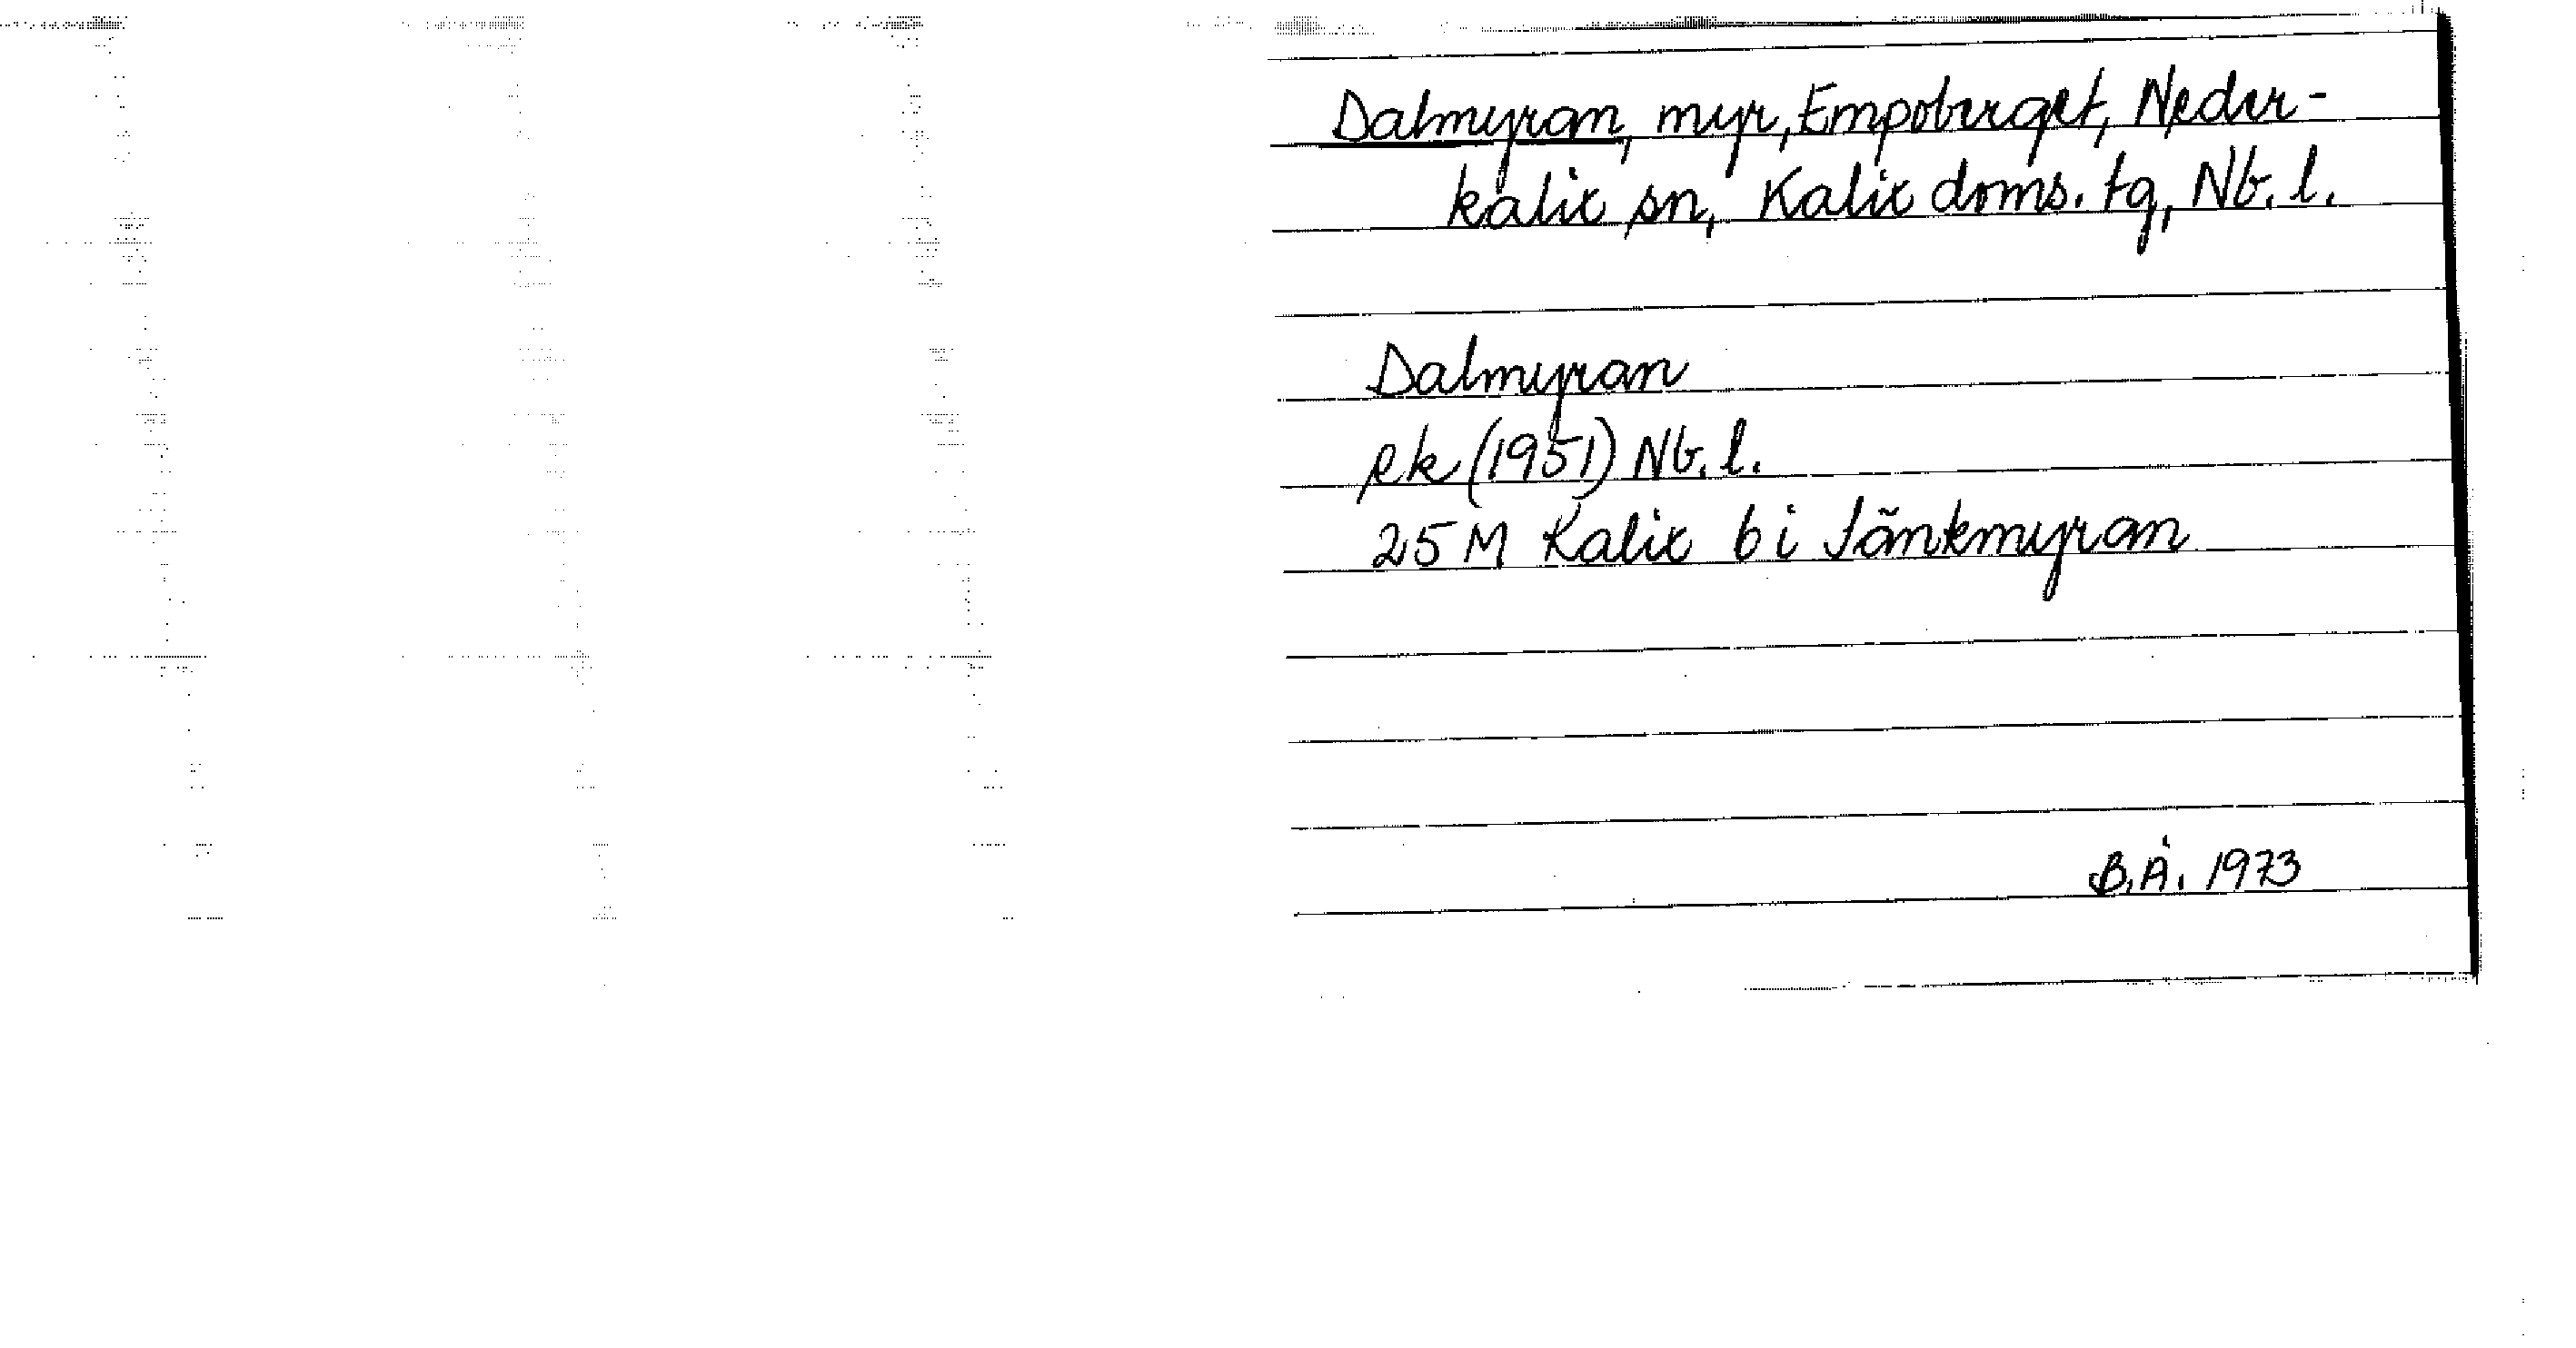 Dalmyran, myr, Empoberget, Neder-
kalix sn, Kalix doms. tg, Nb. l.
Dalmyran
ek (1951) Nb. l.
25 M Kalix 6 i Tänkmyran
B.Å. 1973